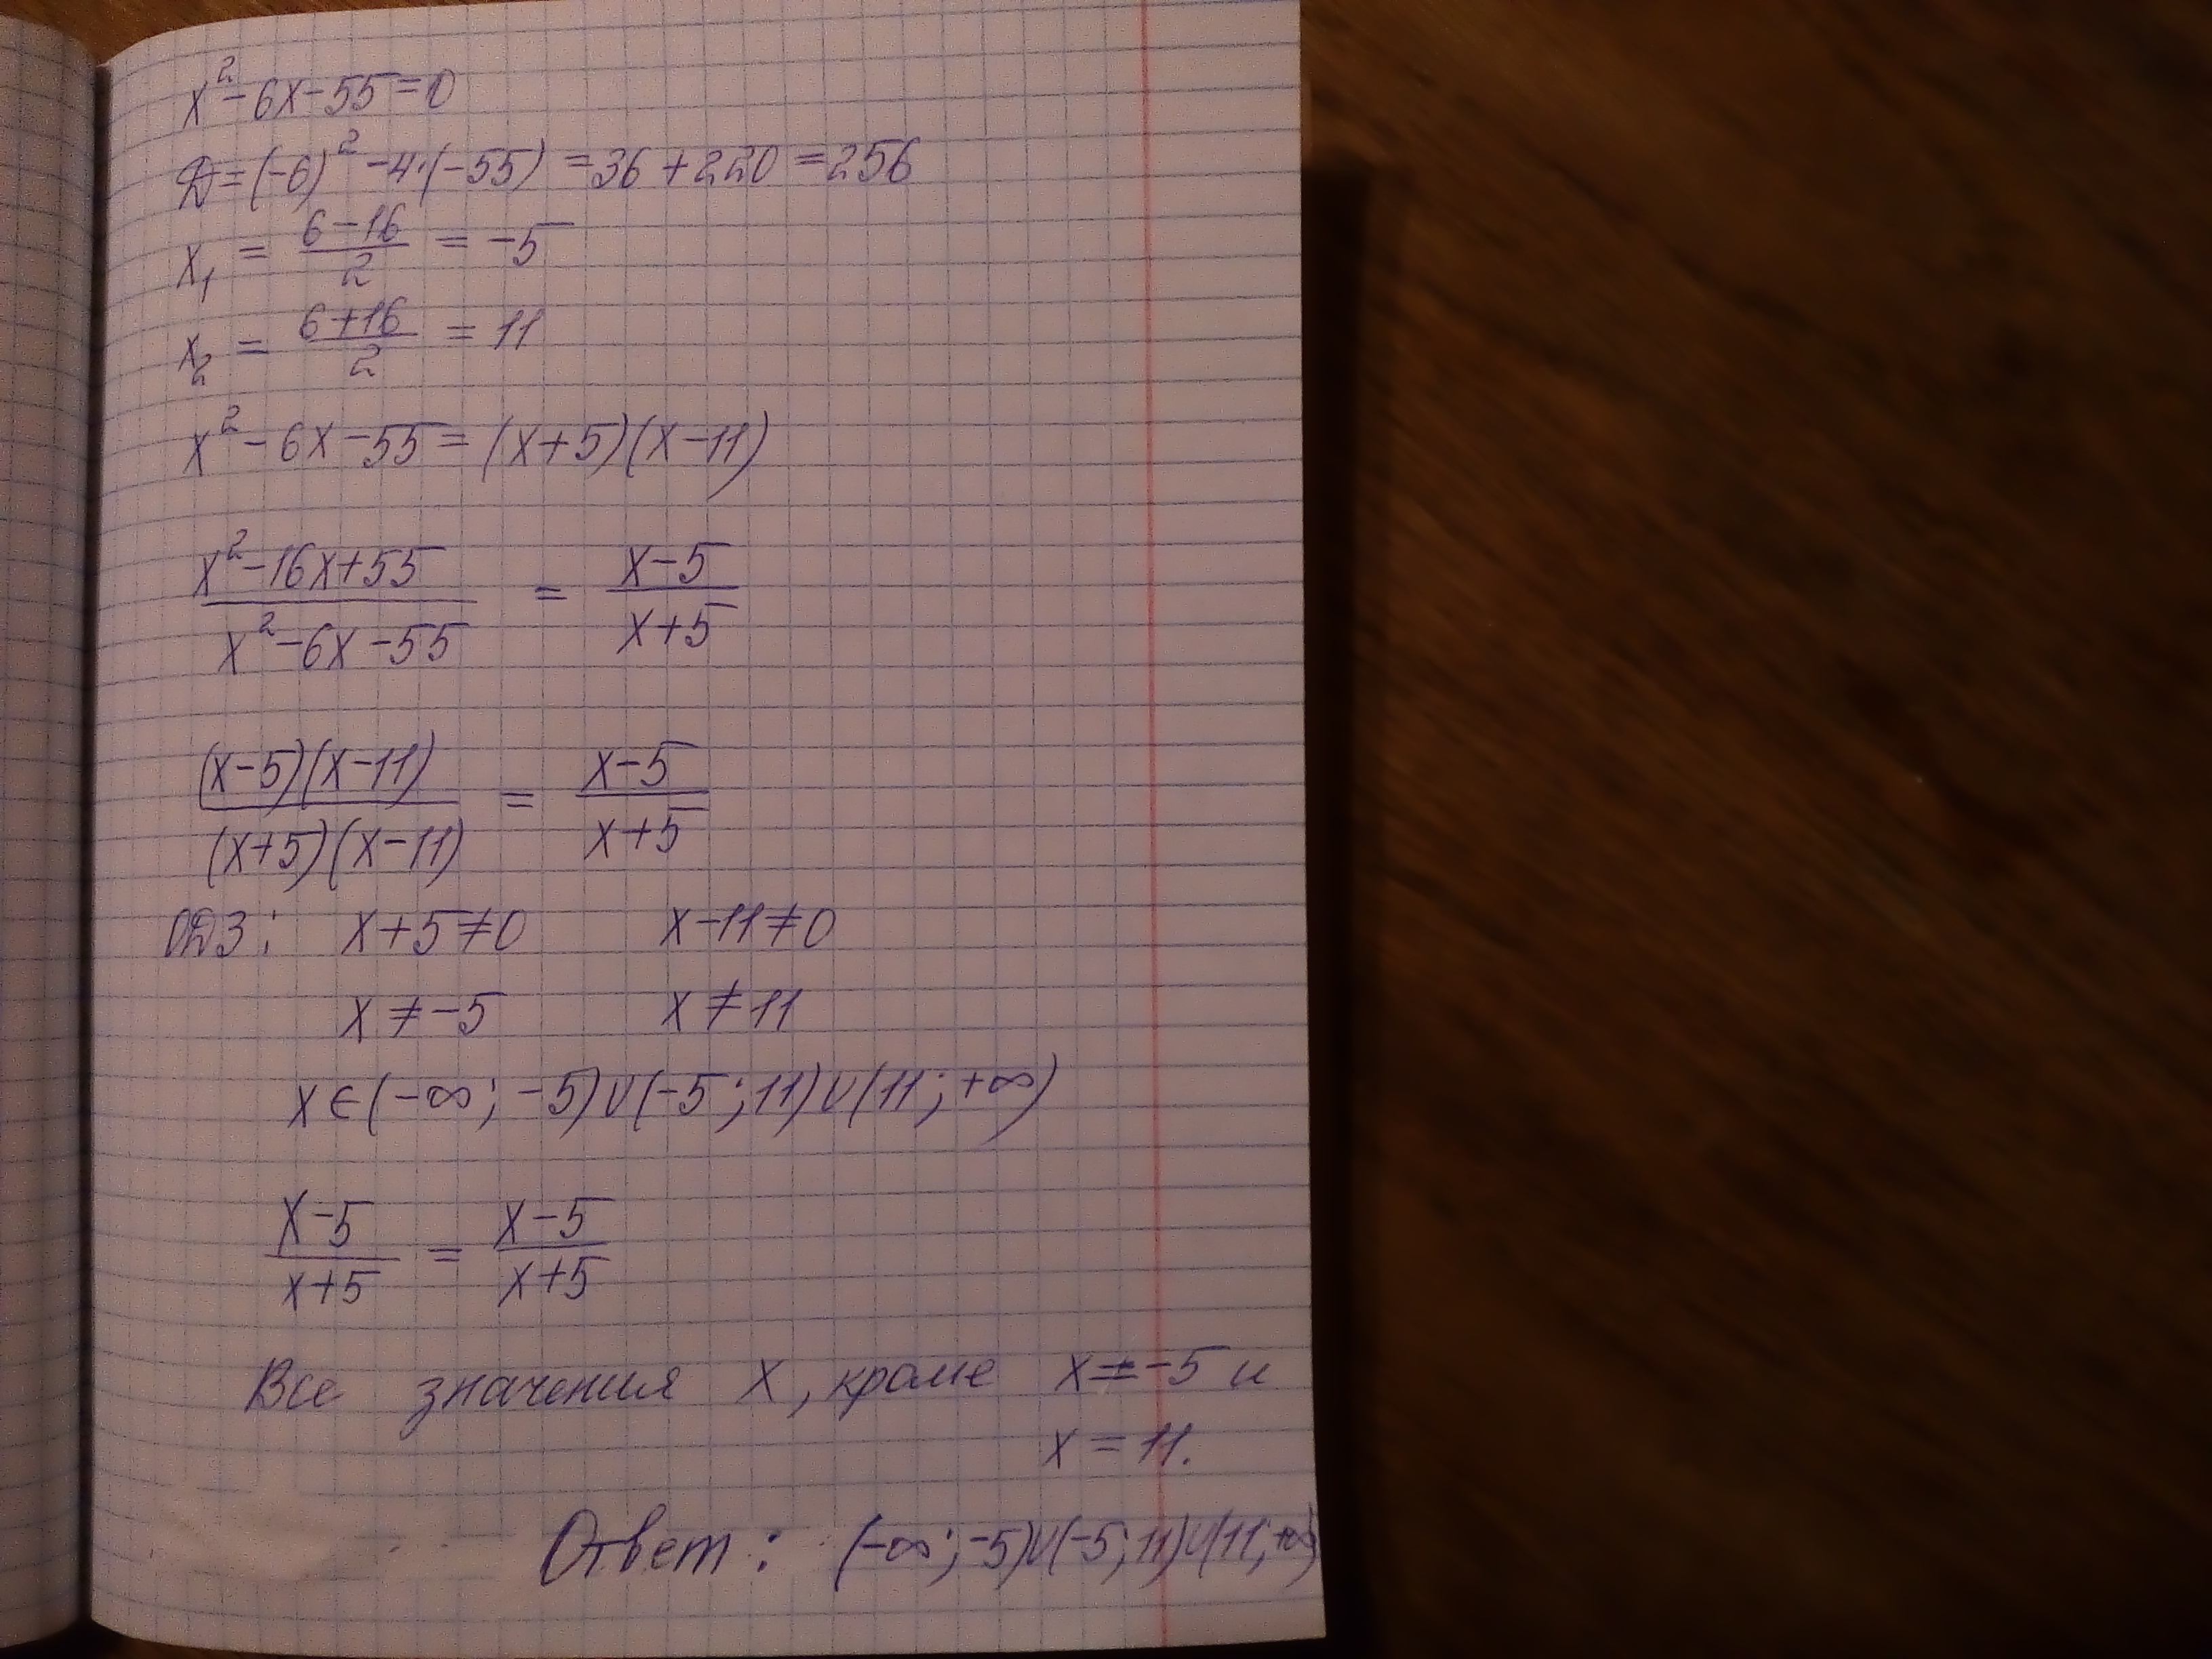 x² - 6x - 55 = 0
Д = (-6)² - 4·(-55) = 36 + 220 = 256
x₁ = (6-16)/2 = -5
x₂ = (6+16)/2 = 11
x² - 6x - 55 = (x+5)(x-11)
(x² - 16x + 55)/(x² - 6x - 55) = (x-5)/(x+5)
((x-5)(x-11))/((x+5)(x-11)) = (x-5)/(x+5)
ОДЗ: x+5≠0 x-11≠0
x ≠ -5 x ≠ 11
x ∈ (-∞; -5)∪(-5; 11)∪(11; +∞)
(x-5)/(x+5) = (x-5)/(x+5)
Все значения x, кроме x = -5 и
x = 11.
Ответ: (-∞; -5)∪(-5; 11)∪(11; +∞)